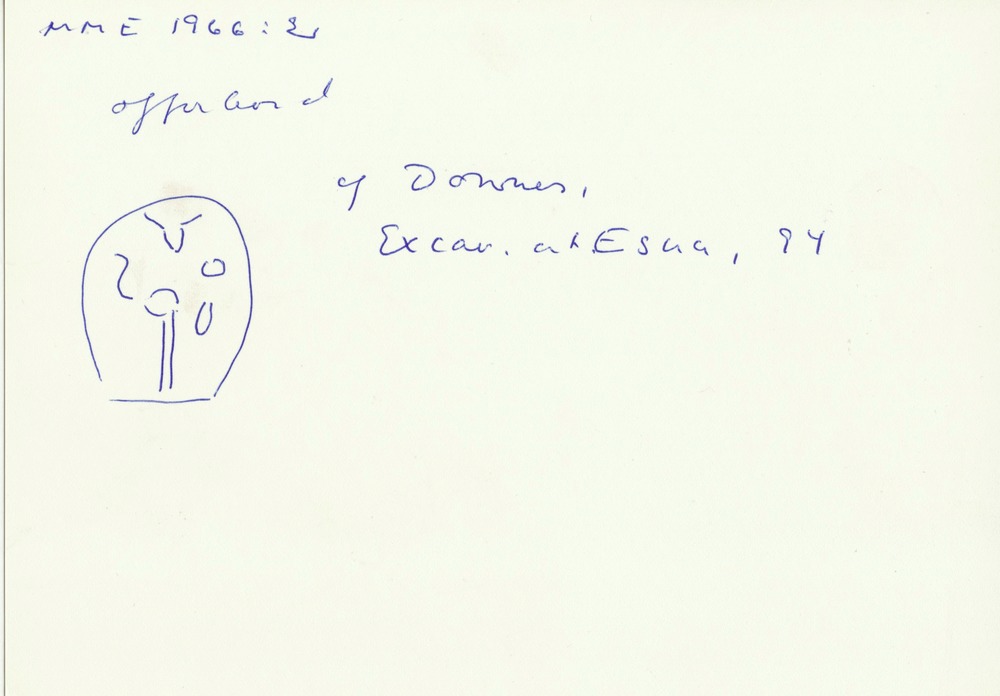 MME 1966:2
offerbord
cf Downes,
Excav. at Esna, 94